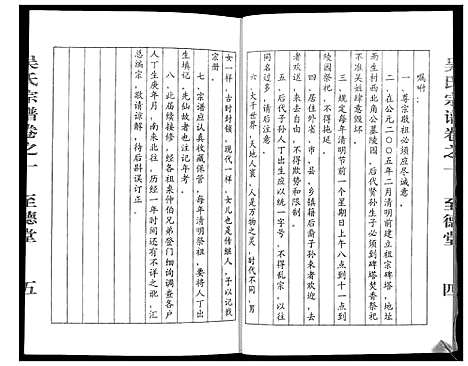 吴氏宗谱卷之一 至德堂 四
嘱咐：
一、尊宗敬祖必须应尽诚意。
二、在公元二00五年二月清明前建立祖宗碑塔，
而生村西北角公墓陵园，后代贤孙生子必须到碑塔焚香祭祀
不准吴姓肆意毁坏。
三、规定每年清明节前一个星期日上午八点到十一点到
陵园祭祀，不得拖延。
四、居住外省、市、县、乡镇籍后裔子孙来者欢迎，去
者欢送，不得有欺势和限制。
五、后代子孙人丁出生应以统一字号，不得乱宗，以往
同名过多，请后注意。
六、大千世界，天地人寰，人是万物之灵，时代不同，男
女一样，古时封锁，现代一样，女儿也是传继人，予以记载
宗册。
七、宗谱应认真收藏保管，每年清明祭祖，要将人丁出
生填记，先仙故者也注记年考。
八、此届续接修，经各祖来仲伯兄弟登门细询调查各户
人丁生庚年月，南来北往，历经一年时间还有不详之疵，汇
总编宗，敬请谅解，待后斟误订正。
吴氏宗谱卷之一 至德堂 五